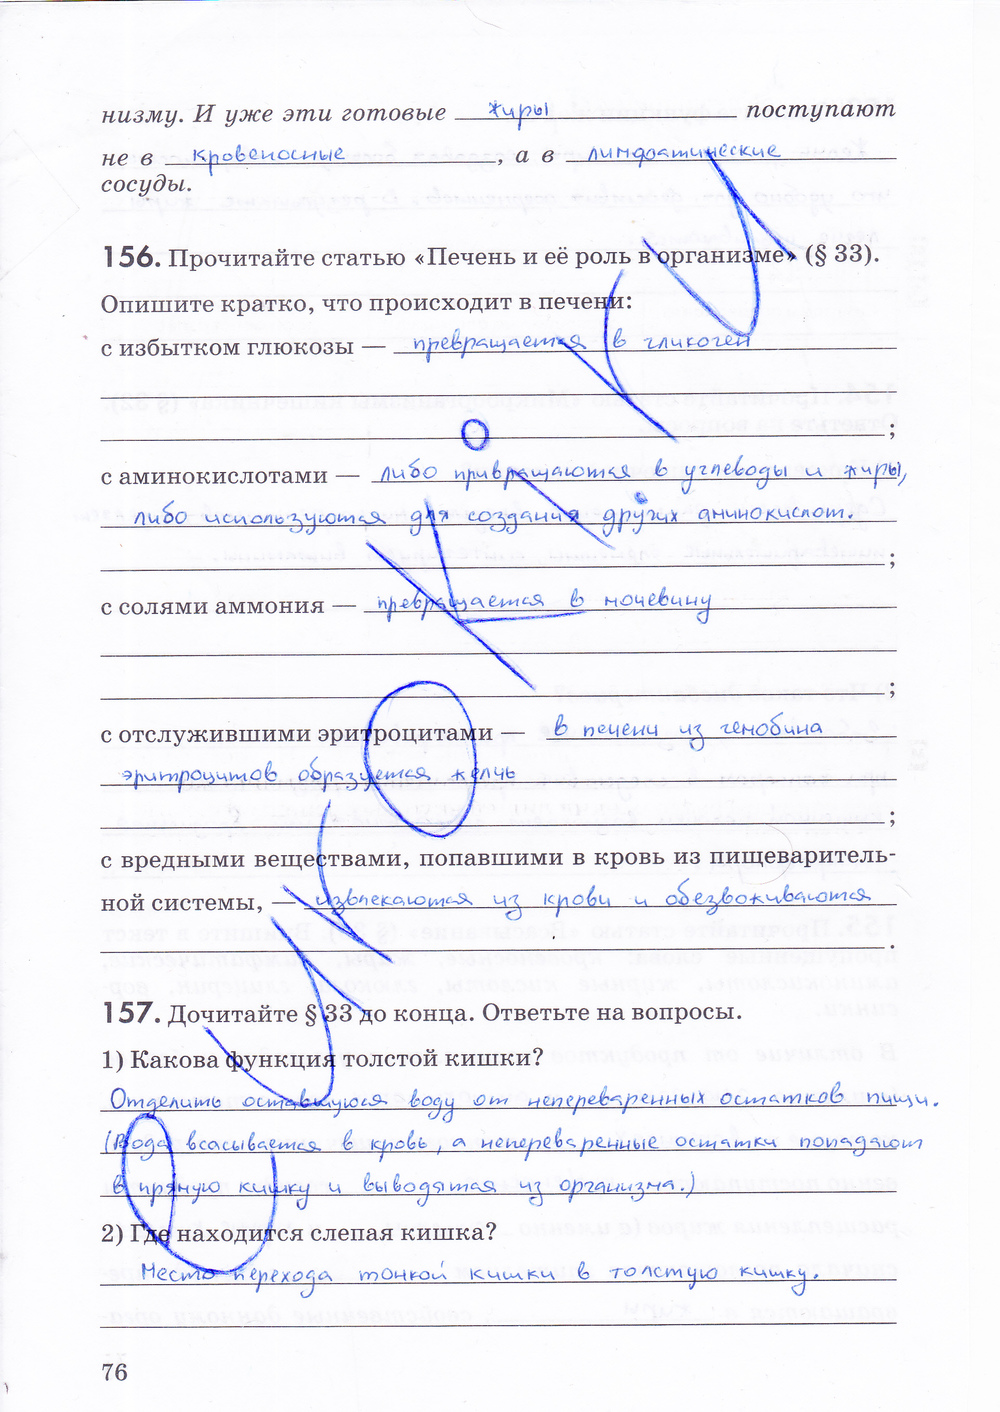 низму. И уже эти готовые жиры поступают
не в кровеносные, а в лимфатические
сосуды.
156. Прочитайте статью «Печень и её роль в организме» (§ 33).
Опишите кратко, что происходит в печени:
с избытком глюкозы — превращается в гликоген
;
с аминокислотами — либо привращаются в углеводы и жиры,
либо используются для создания других аминокислот.
;
с солями аммония — превращается в мочевину
;
с отслужившими эритроцитами — в печени из гемобина
эритроцитов образуется желчь
;
с вредными веществами, попавшими в кровь из пищеваритель-
ной системы, — извлекаются из крови и обезвоживаются
.
157. Дочитайте § 33 до конца. Ответьте на вопросы.
1) Какова функция толстой кишки?
Отделить оставшуюся воду от непереваренных остатков пищи.
(Вода всасывается в кровь, а непереваренные остатки попадают
в прямую кишку и выводятся из организма.)
2) Где находится слепая кишка?
Место перехода тонкой кишки в толстую кишку.
76